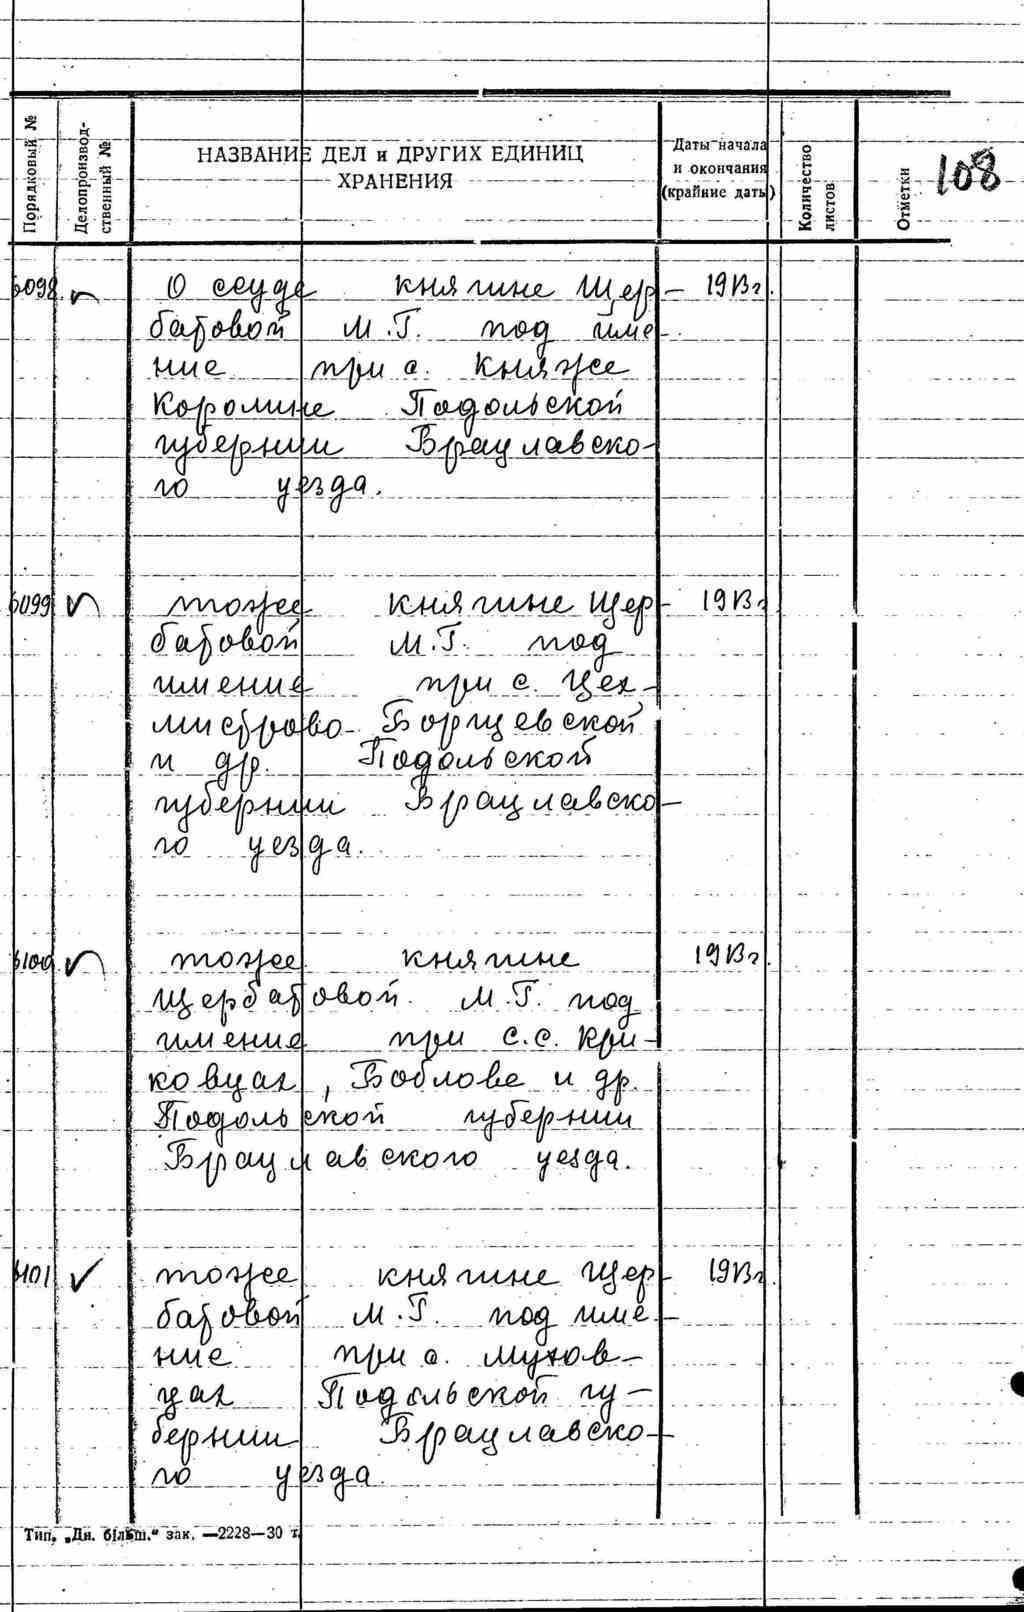 Порядковый №
Делопроизвод-
ственный №
НАЗВАНИЕ ДЕЛ и ДРУГИХ ЕДИНИЦ
ХРАНЕНИЯ
Даты начала
и окончания
(крайние даты)
Количество
листов
Отметки
108
6098 О ссуде княгине Щер- 1913 г.
батовой М.Г. под име-
ние при с. Княже
Королине Подольской
губернии Брацлавско-
го уезда.
6099 тоже княгине Щер- 1913 г
батовой М.Г. под
имение при с. Цех-
мистрово-Борщевской
и др. Подольской
губернии Брацлавско-
го уезда.
6100 тоже княгине 1913 г.
Щербатовой М.Г. под
имение при с.с. Кри-
ковцах, Боблове и др.
Подольской губернии
Брацлавского уезда.
6101 тоже княгине Щер- 1913 г.
батовой М.Г. под име-
ние при с. Мухов-
цах Подольской гу-
бернии Брацлавско-
го уезда.
Тип. „Дн. більш.“ зак. —2228—30 т.